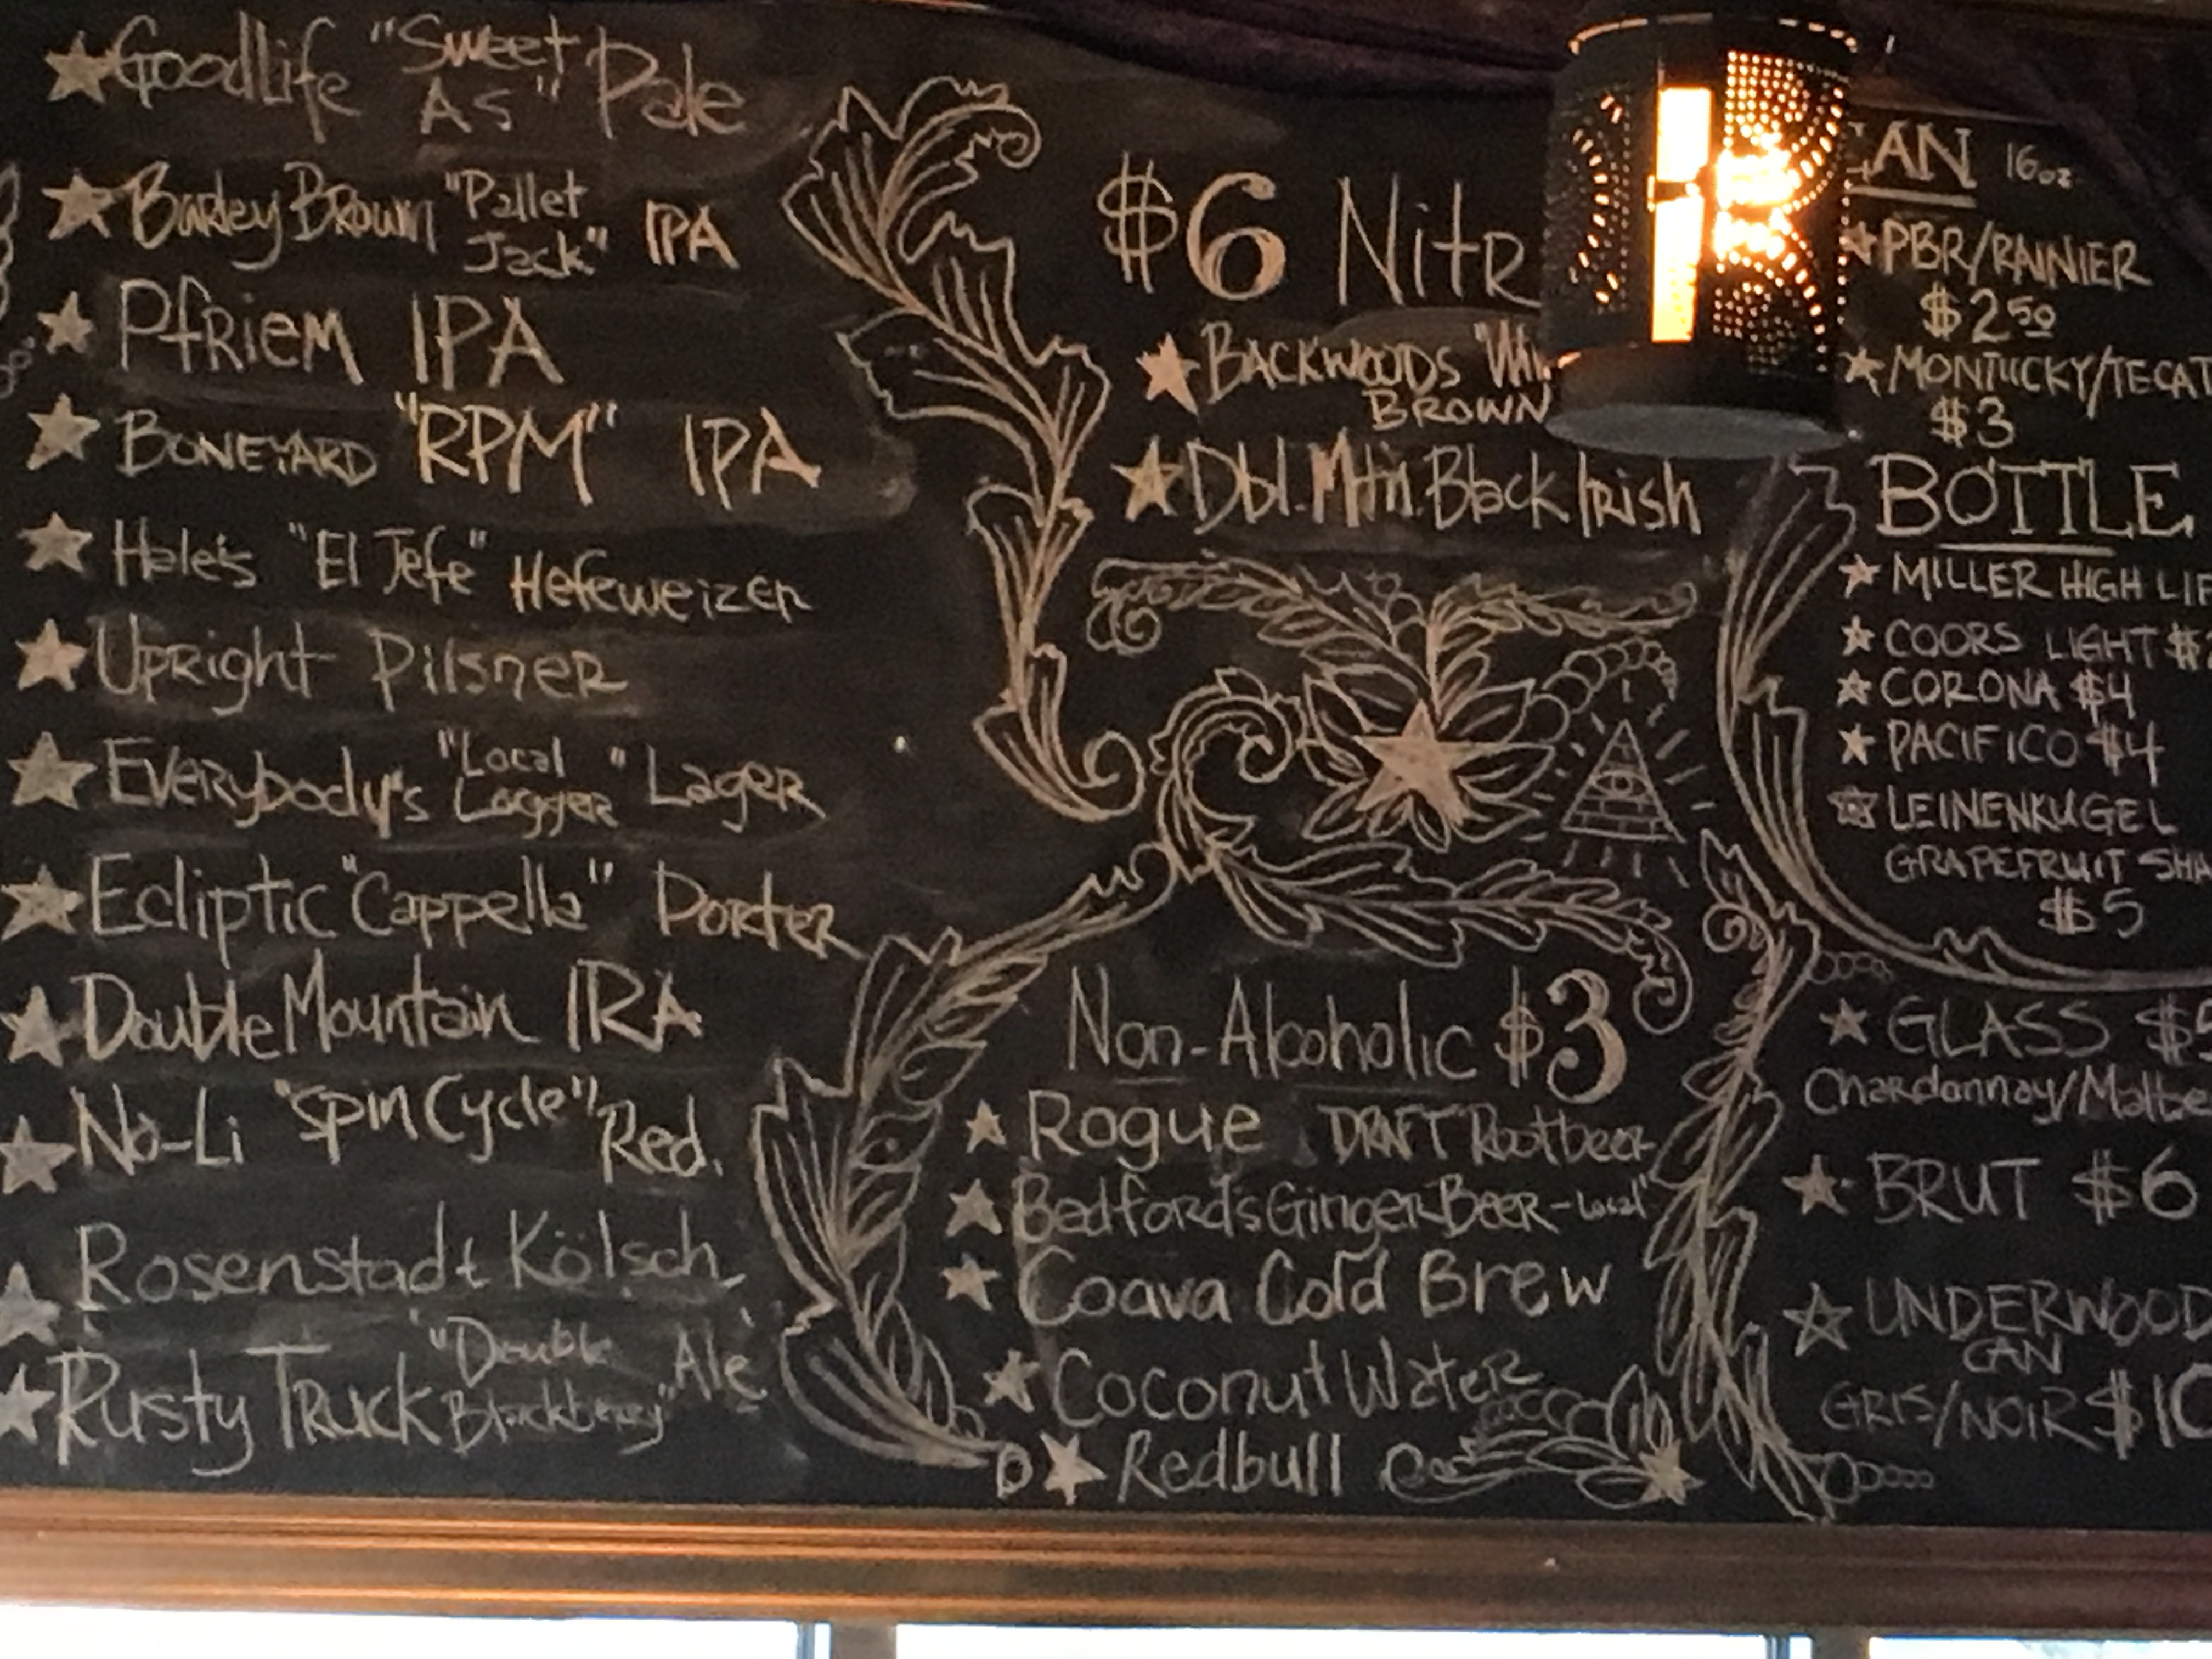 Goodlife "Sweet As" Pale
Barley Brown "Pallet Jack" IPA
Pfriem IPA
Boneyard "RPM" IPA
Hale's "El Jefe" Hefeweizen
Upright Pilsner
Everybody's "Local Logger" Lager
Ecliptic "Cappella" Porter
Double Mountain IRA
No-Li "Spin Cycle" Red.
Rosenstadt Kölsch
Rusty Truck "Double Blackberry" Ale
$6 Nitr
BACKWOODS
BROWN
Dbl. Mtn. Black Irish
Non-Alcoholic $3
Rogue DRAFT Rootbeer
Bedford's Ginger Beer - Local
Coava Cold Brew
Coconut Water
Redbull
CAN 16oz
PBR/RAINIER
$2.50
MONTUCKY/TECAT
$3
BOTTLE
MILLER HIGH LIF
COORS LIGHT $
CORONA $4
PACIFICO $4
LEINENKUGEL
GRAPEFRUIT SHA
$5
GLASS $5
Chardonnay/Malbe
BRUT $6
UNDERWOOD
CAN
GRIS/NOIR $10